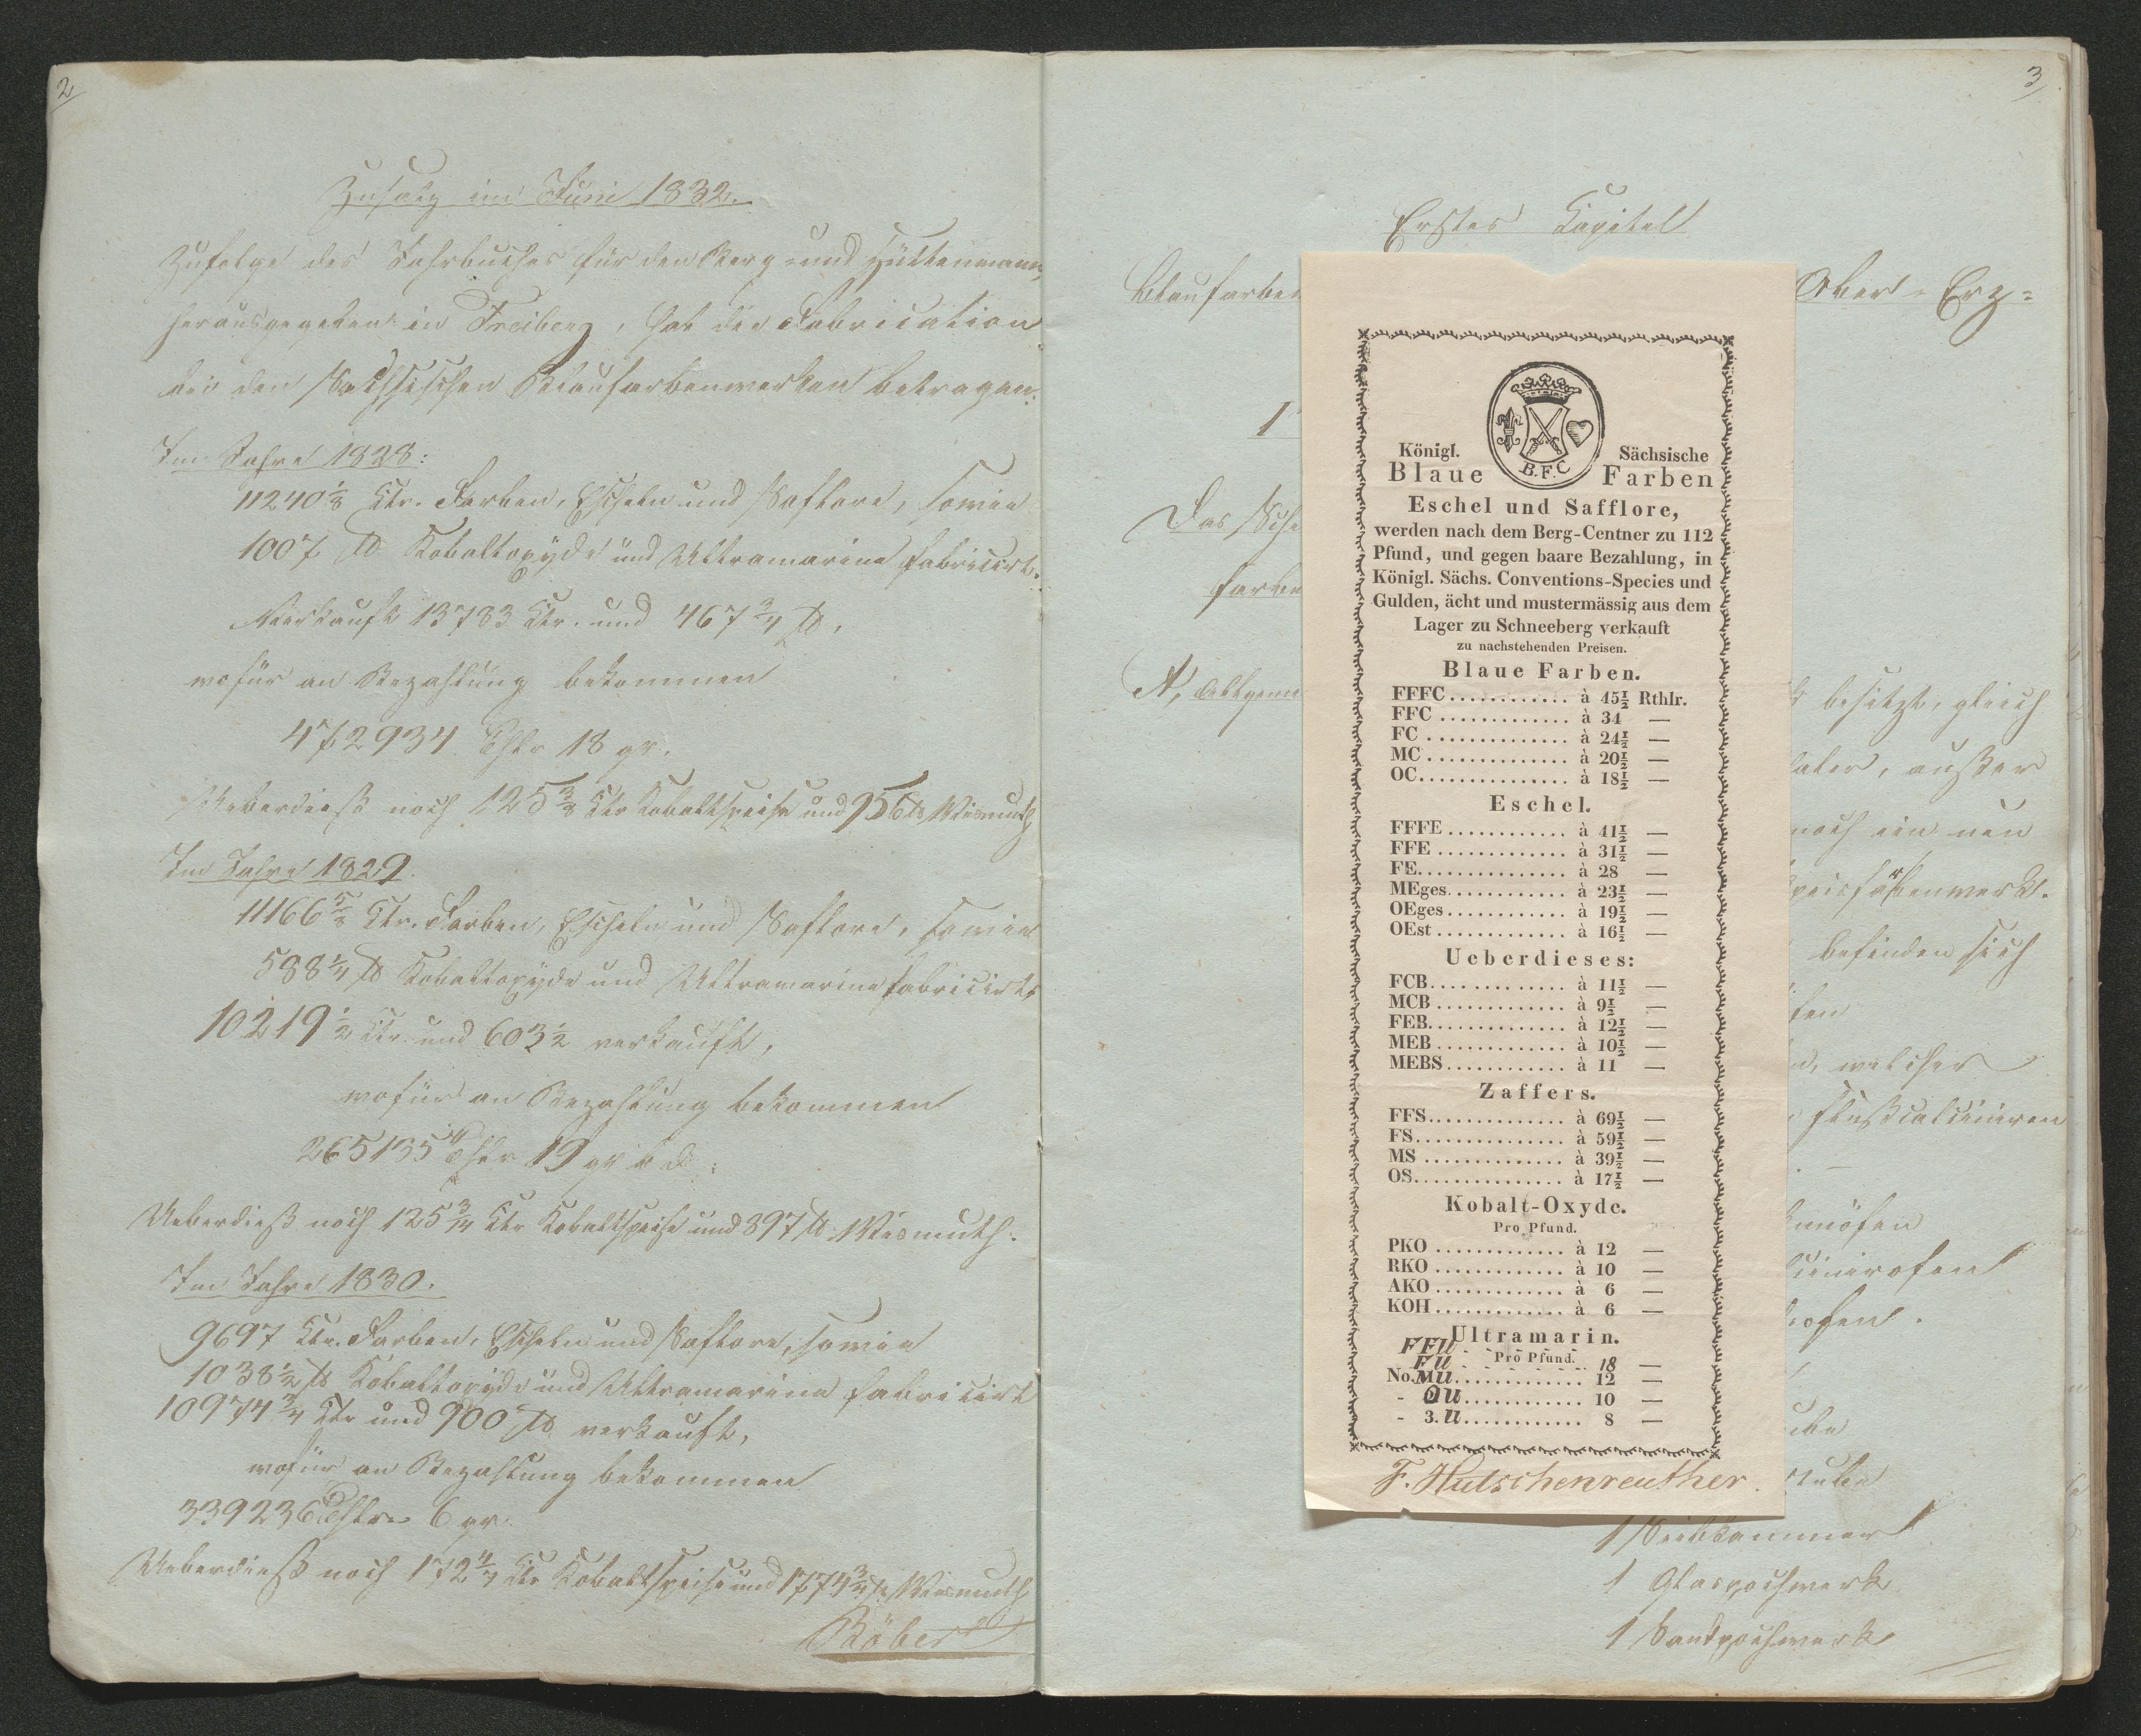 2
Zusatz im Juni 1832.
Zufolge des Jahrbuches für den Berg- und Hüttenmann,
herausgegeben in Freiberg, hat die Fabrication
bei den Sächsischen Blaufarbenwerken betragen:
Im Jahre 1828:
11240 1/8 Ctr. Farben, Escheln und Saflore, sowie
1007 ℔ Kobaltoxyde und Ultramarine fabricirt.
Verkauft 13783 Ctr. und 467 3/4 ℔,
wofür an Bezahlung bekommen
472934 Thlr 18 gr.
Ueberdieß noch 125 3/8 Ctr Kobaltspeise und Wismuth
Im Jahre 1829.
11166 Ctr. Farben, Escheln und Saflore, sowie
588 1/4 ℔ Kobaltoxyde und Ultramarine fabricirt,
10219 1/2 Ctr. und 603 1/2 verkauft,
wofür an Bezahlung bekommen
265135 Thlr 19 gr
Ueberdieß noch 125 Ctr Kobaltspeise und 397 ℔ Wismuth.
Im Jahre 1830.
9697 Ctr. Farben, Escheln und Saflore, sowie
1038 1/2 ℔ Kobaltoxyde und Ultramarine fabricirt
10974 3/4 Ctr und 900 ℔ verkauft,
wofür an Bezahlung bekommen
339236 Thlr 6 gr.
Ueberdieß noch 172 Ctr Kobaltspeise und 1774 3/4 ℔ Wismuth
Böbert
3
Erstes Capitel
Blaufarben Ober-Erz=
1
Das
farben
A,
besitzt, gleich
außer
noch ein neu
farbenwerk.
befinden sich
welcher
1 Siebkammer
1 Glaspochwerk
1 Sandpochwerk
Königl. Sächsische
Blaue Farben
B.F.C
Eschel und Safflore,
werden nach dem Berg-Centner zu 112
Pfund, und gegen baare Bezahlung, in
Königl. Sächs. Conventions-Species und
Gulden, ächt und mustermässig aus dem
Lager zu Schneeberg verkauft
zu nachstehenden Preisen.
Blaue Farben.
FFFC ............ à 45½ Rthlr.
FFC ............. à 34 —
FC .............. à 24½ —
MC .............. à 20½ —
OC............... à 18½ —
Eschel.
FFFE ............ à 41½ —
FFE ............. à 31½ —
FE............... à 28 —
MEges............ à 23½ —
OEges............ à 19½ —
OEst ............. à 16½ —
Ueberdieses:
FCB.............. à 11½ —
MCB ............. à 9½ —
FEB.............. à 12½ —
MEB ............. à 10½ —
MEBS............ à 11 —
Zaffers.
FFS.............. à 69½ —
FS............... à 59½ —
MS .............. à 39½ —
OS............... à 17½ —
Kobalt-Oxyde.
Pro Pfund.
PKO ............. à 12 —
RKO ............. à 10 —
AKO ............. à 6 —
KOH ............. à 6 —
Ultramarin.
FFU - - - - - -
Pro Pfund.
FU - - - - - - 18 —
No. MU............. 12 —
- OU............ 10 —
- 3. U............ 8 —
F. Hutschenreuther.